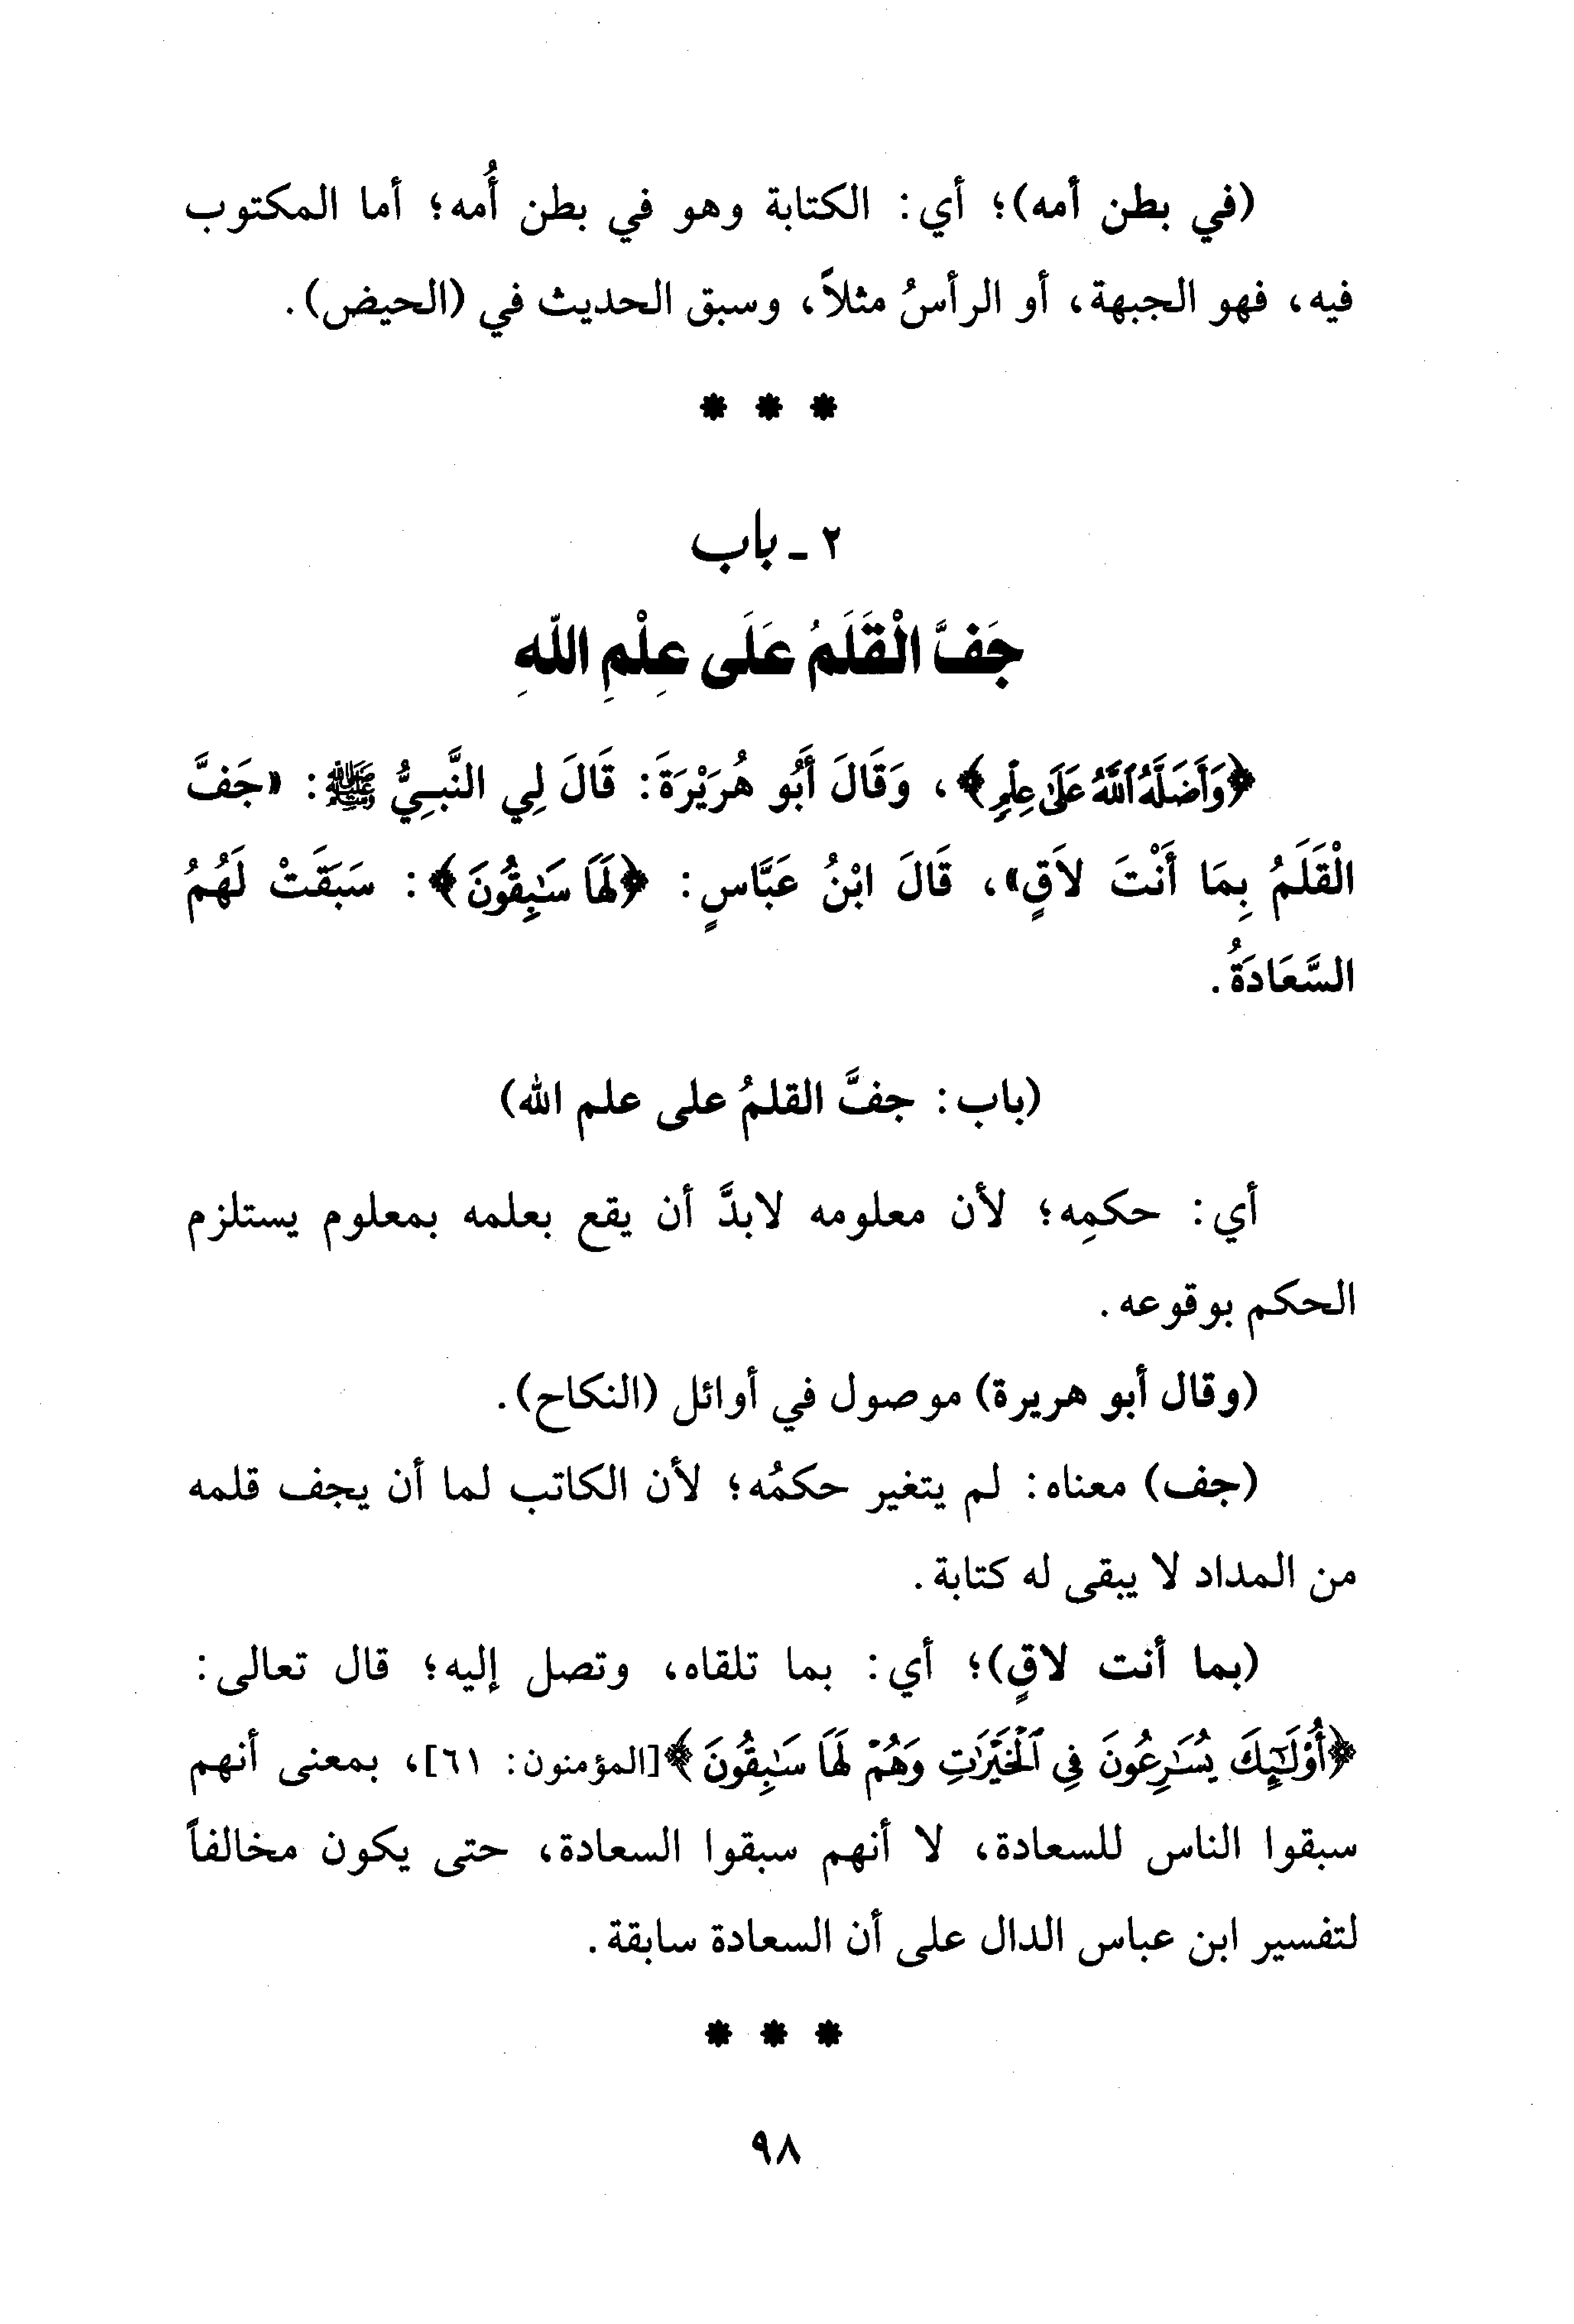 (في بطن أمه)؛ أي: الكتابة وهو في بطن أُمه؛ أما المكتوب
فيه، فهو الجبهة، أو الرأسُ مثلاً، وسبق الحديث في (الحيض).
* * *
٢ - باب
جَفَّ الْقَلَمُ عَلَى عِلْمِ اللهِ
﴿وَأَضَلَّهُ ٱللَّهُ عَلَىٰ عِلْمٍ﴾، وَقَالَ أَبُو هُرَيْرَةَ: قَالَ لِي النَّبِيُّ ﷺ: «جَفَّ
الْقَلَمُ بِمَا أَنْتَ لاَقٍ»، قَالَ ابْنُ عَبَّاسٍ: ﴿لَهَا سَٰبِقُونَ﴾: سَبَقَتْ لَهُمُ
السَّعَادَةُ.
(باب: جفَّ القلمُ على علم الله)
أي: حكمِه؛ لأن معلومه لابدَّ أن يقع بعلمه بمعلوم يستلزم
الحكم بوقوعه.
(وقال أبو هريرة) موصول في أوائل (النكاح).
(جف) معناه: لم يتغير حكمُه؛ لأن الكاتب لما أن يجف قلمه
من المداد لا يبقى له كتابة.
(بما أنت لاقٍ)؛ أي: بما تلقاه، وتصل إليه؛ قال تعالى:
﴿أُوْلَٰٓئِكَ يُسَٰرِعُونَ فِي ٱلْخَيْرَٰتِ وَهُمْ لَهَا سَٰبِقُونَ﴾[المؤمنون: ٦١]، بمعنى أنهم
سبقوا الناس للسعادة، لا أنهم سبقوا السعادة، حتى يكون مخالفاً
لتفسير ابن عباس الدال على أن السعادة سابقة.
* * *
٩٨